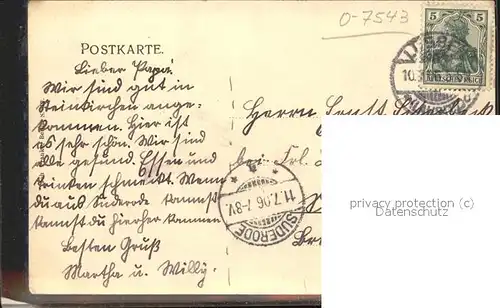 0-7543
5 5
LÜBBEN
10.
POSTKARTE.
Lieber Papa!
Wir sind gut in
Steinkirchen ange-
kommen. Hier ist
es sehr schön. Wir sind
alle gesund. Essen und
trinken schmeckt. Wenn
du aus Suderode kommst
kannst du hierher kommen
Besten Gruß
Martha u. Willy.
Herrn Ernst
bei Frl.
11.7.06 7-8V.
SUDERODE
privacy protection (c)
Datenschutz